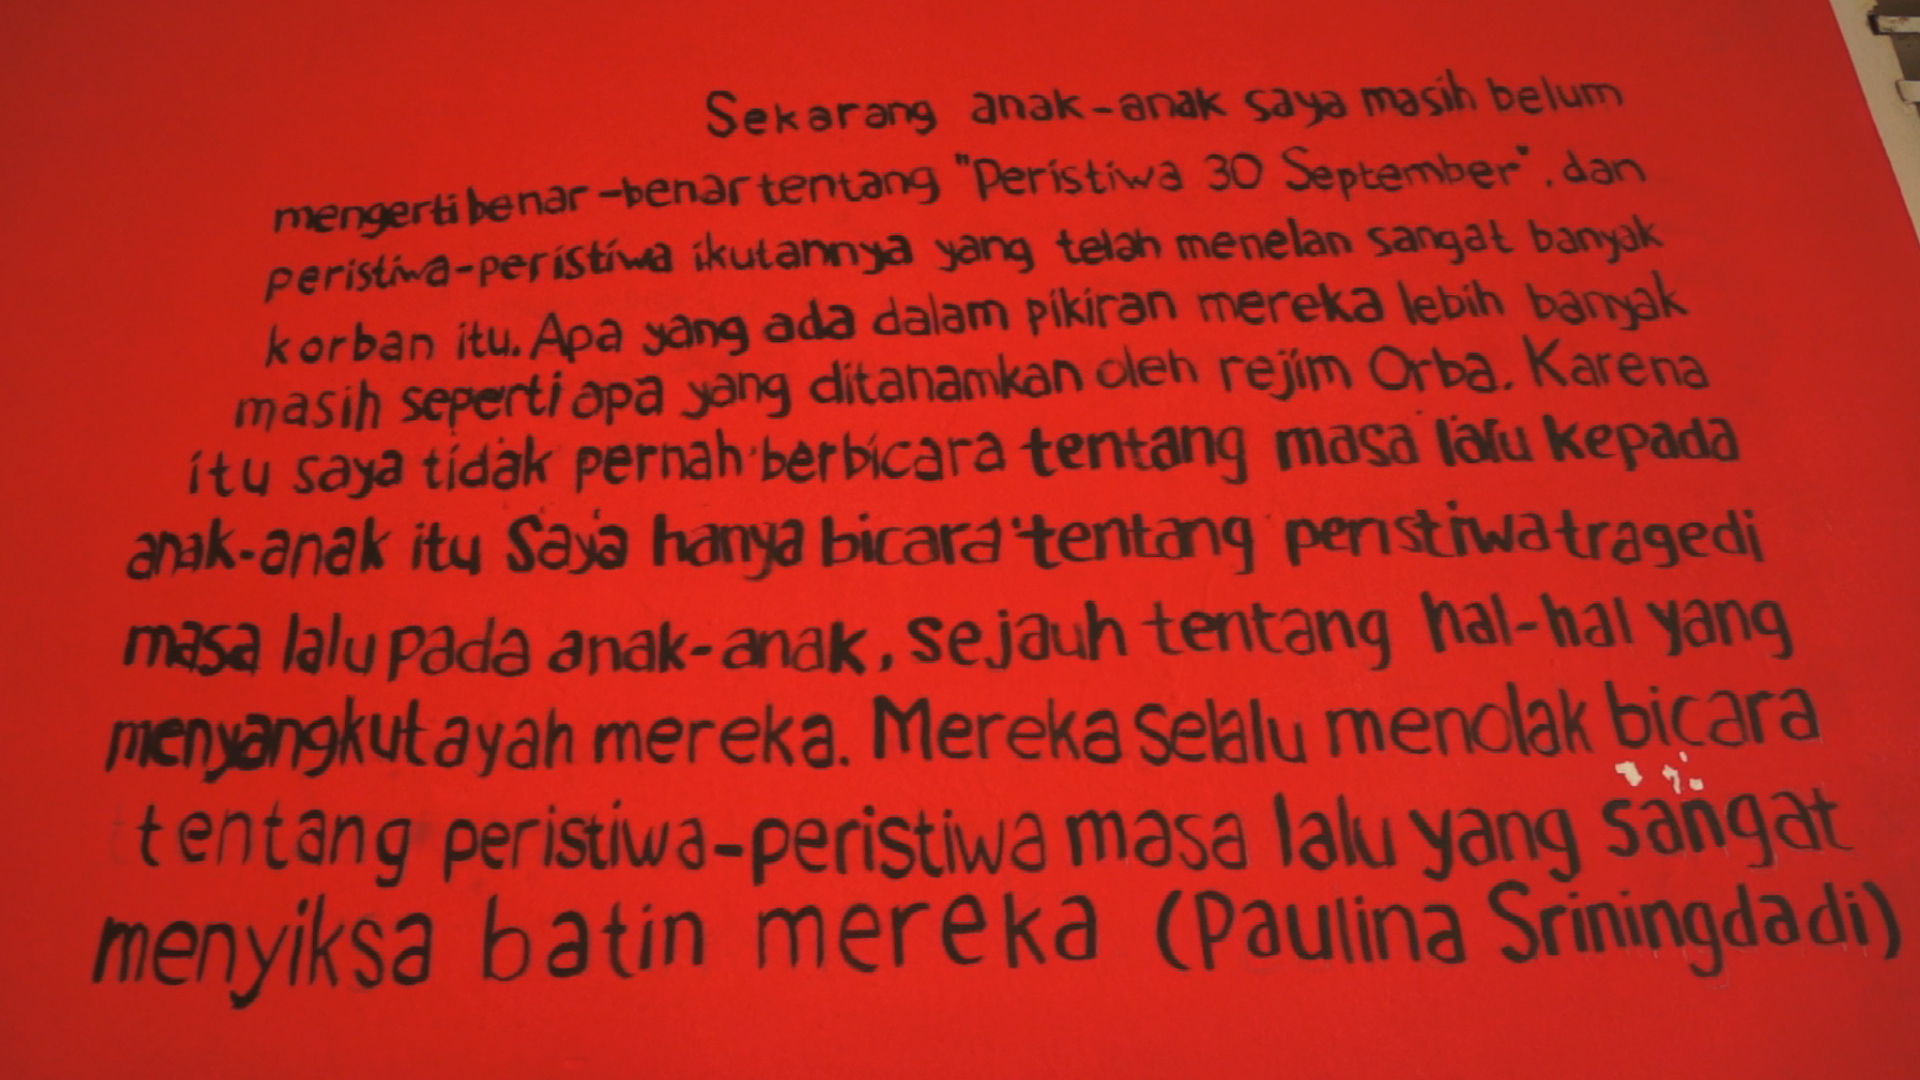 Sekarang anak-anak saya masih belum
mengerti benar-benar tentang "Peristiwa 30 September", dan
peristiwa-peristiwa ikutannya yang telah menelan sangat banyak
korban itu. Apa yang ada dalam pikiran mereka lebih banyak
masih seperti apa yang ditanamkan oleh rejim Orba. Karena
itu saya tidak pernah berbicara tentang masa lalu kepada
anak-anak itu Saya hanya bicara tentang peristiwa tragedi
masa lalu pada anak-anak, sejauh tentang hal-hal yang
menyangkut ayah mereka. Mereka selalu menolak bicara
tentang peristiwa-peristiwa masa lalu yang sangat
menyiksa batin mereka (Paulina Sriningdadi)